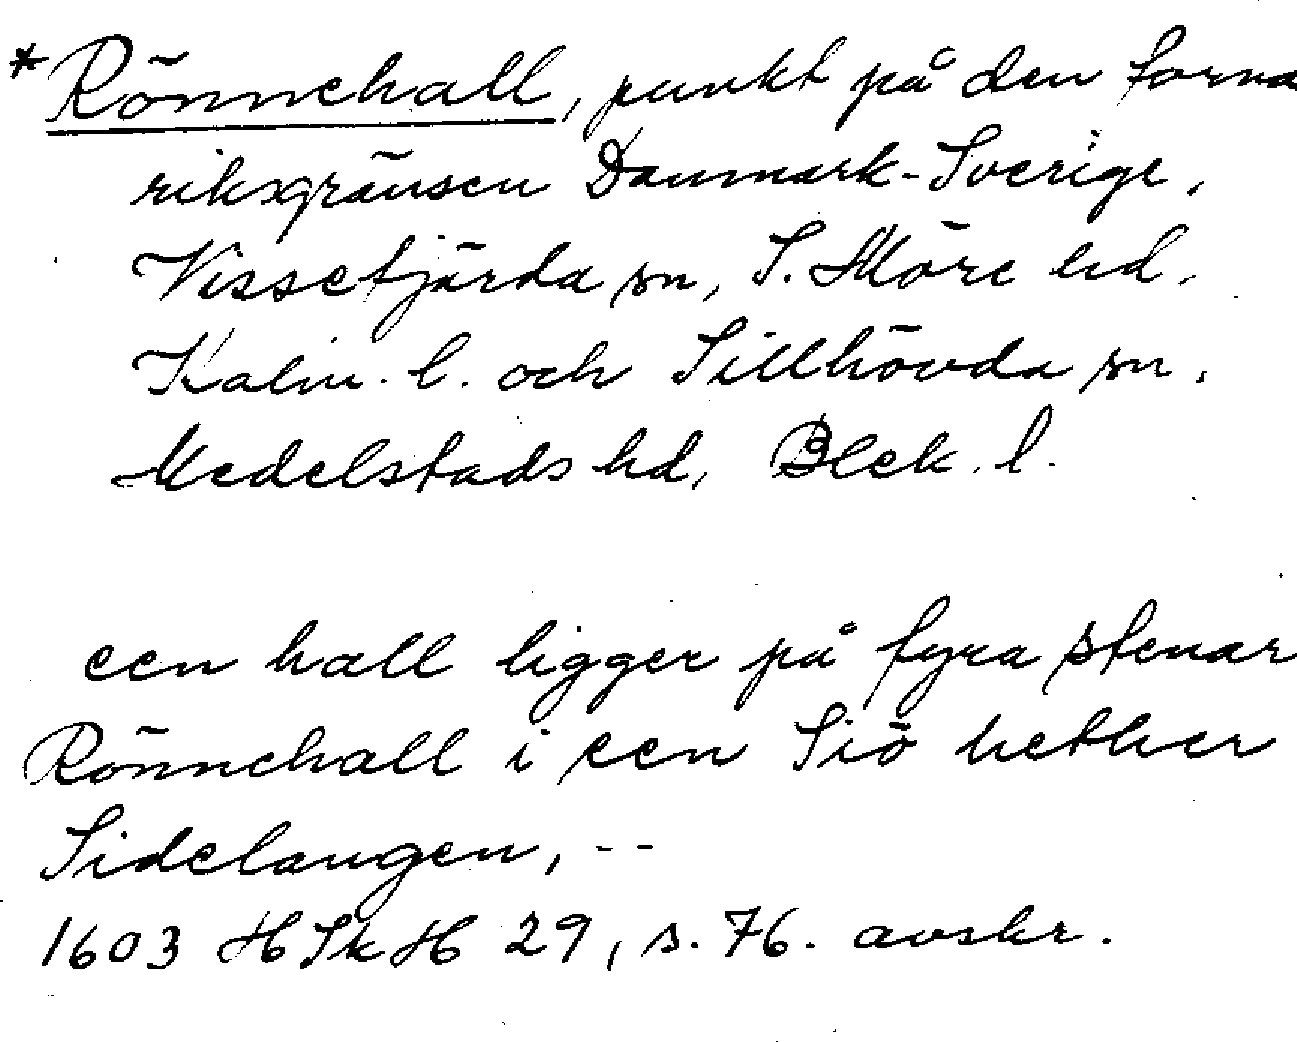 * Rönnehall, punkt på den forna
riksgränsen Danmark-Sverige,
Vissefjärda sn, S. Möre hd,
Kalm. l. och Sillhövda sn,
Medelstads hd, Blek. l.
een hall ligger på fyra stenar
Rönnehall i een Siö hether
Sidelangen, --
1603 HSkH 29, s. 76. avskr.